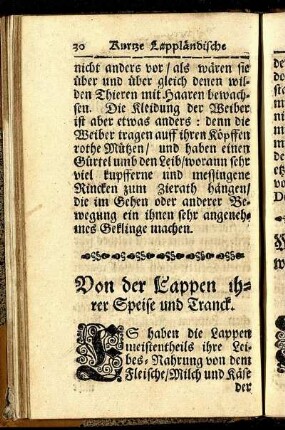 30 Kurtze Lappländische
nicht anders vor / als wären sie
über und über gleich denen wil-
den Thieren mit Haaren bewach-
sen. Die Kleidung der Weiber
ist aber etwas anders: denn die
Weiber tragen auff ihren Köpffen
rothe Mützen / und haben einen
Gürtel umb den Leib / woran sehr
viel kupfferne und messingene
Rincken zum Zierath hängen /
die im Gehen oder anderer Be-
wegung ein ihnen sehr angeneh-
mes Geklinge machen.
Von der Lappen ih-
rer Speise und Tranck.
ES haben die Lappen
meistentheils ihre Lei-
bes-Nahrung von dem
Fleische / Milch und Käse
der